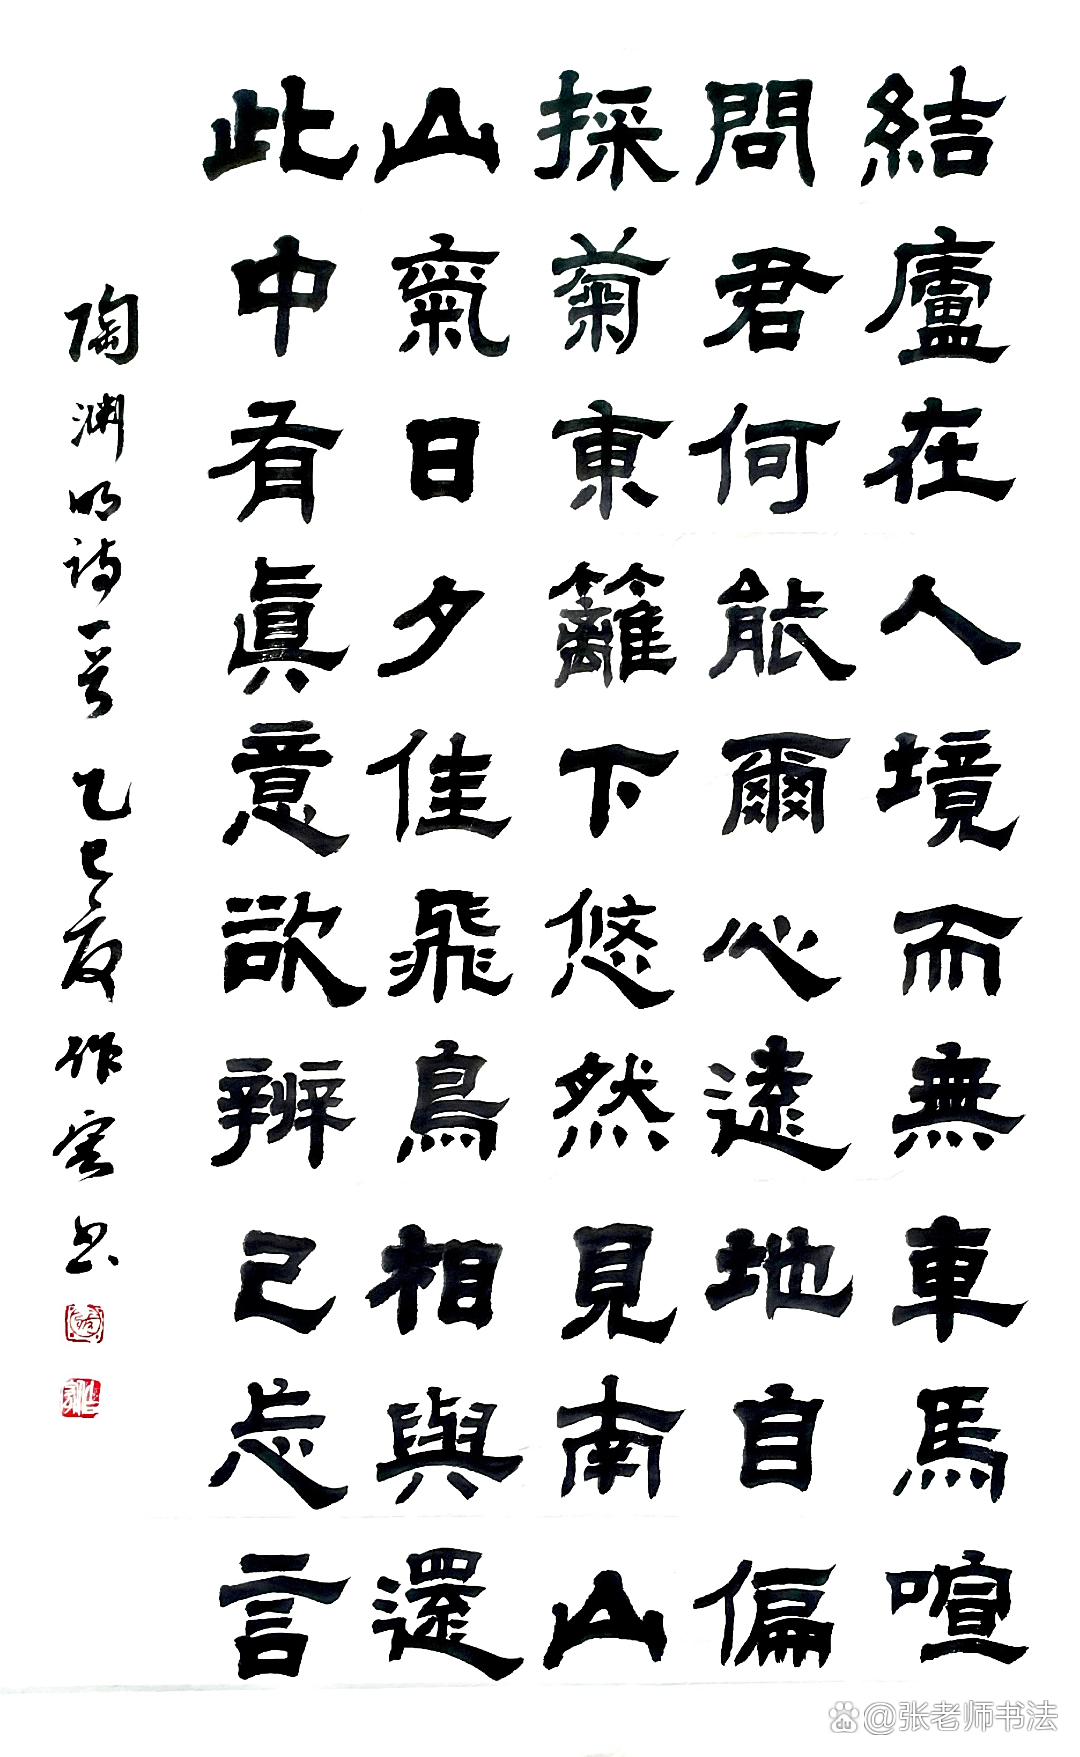 結廬在人境而無車馬喧
問君何能爾心遠地自偏
採菊東籬下悠然見南山
山氣日夕佳飛鳥相與還
此中有真意欲辨己忘言
陶渊明詩一首 乙巳夏作宏书
@张老师书法